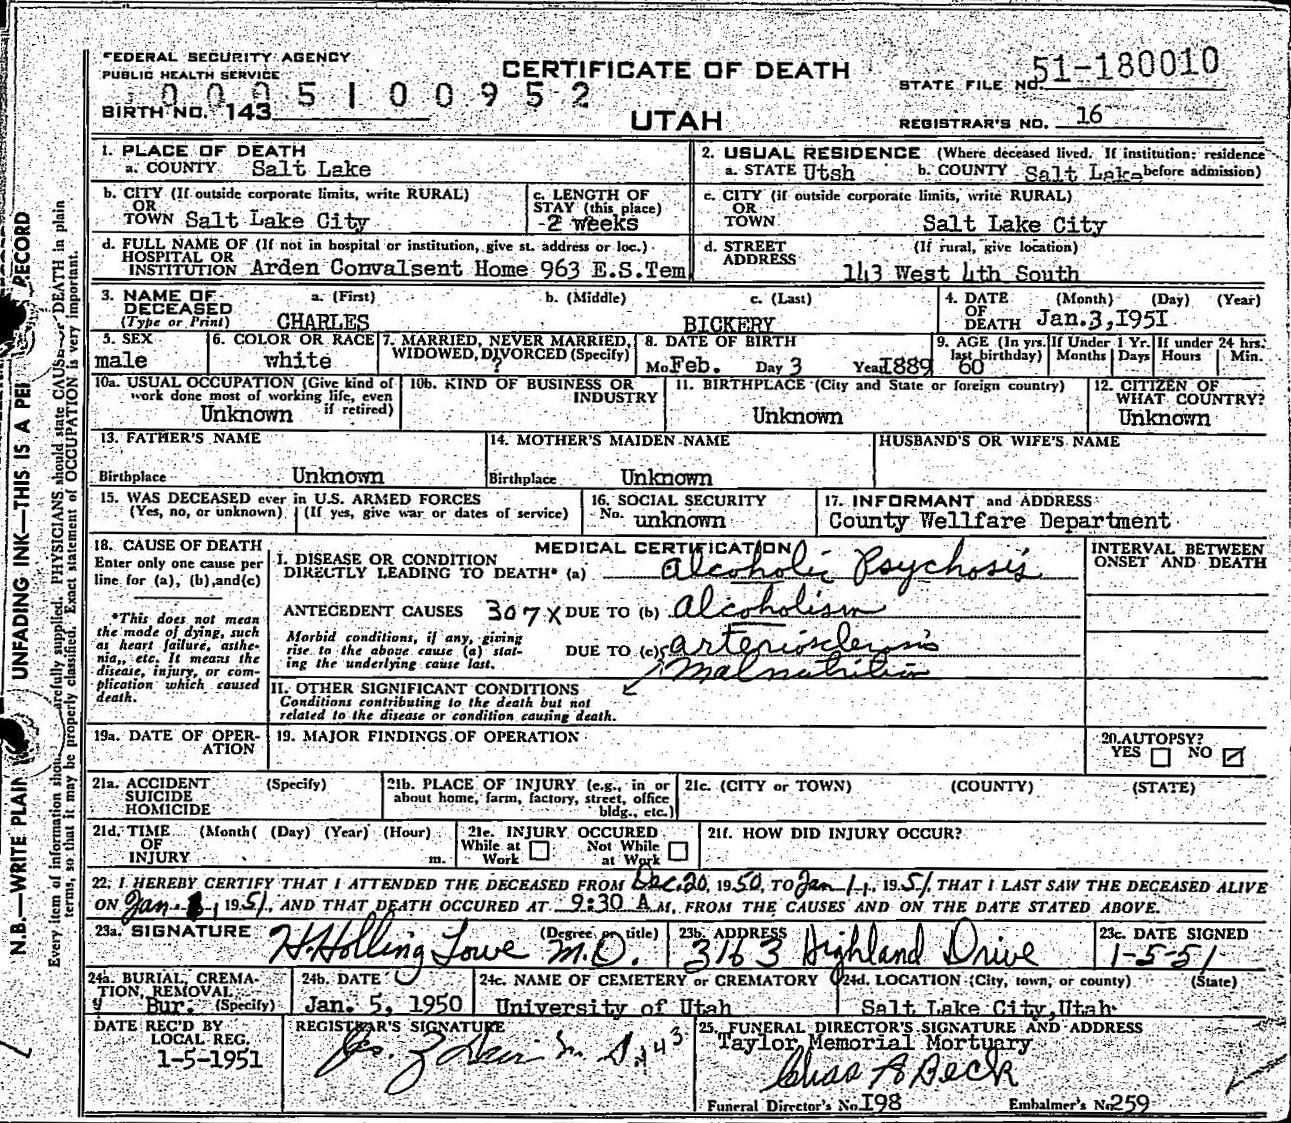 FEDERAL SECURITY AGENCY
PUBLIC HEALTH SERVICE
CERTIFICATE OF DEATH
STATE FILE NO. 51-180010
0005100952
BIRTH NO. 143
UTAH
REGISTRAR'S NO. 16
1. PLACE OF DEATH
a. COUNTY Salt Lake
2. USUAL RESIDENCE (Where deceased lived. If institution: residence before admission)
a. STATE Utsh b. COUNTY Salt Lake
b. CITY (If outside corporate limits, write RURAL)
OR
TOWN Salt Lake City
c. LENGTH OF
STAY (this place)
2 weeks
c. CITY (if outside corporate limits, write RURAL)
OR
TOWN Salt Lake City
d. FULL NAME OF (If not in hospital or institution, give st. address or loc.)
HOSPITAL OR
INSTITUTION Arden Convalsent Home 963 E.S.Tem
d. STREET (If rural, give location)
ADDRESS
143 West 4th South
3. NAME OF
DECEASED
(Type or Print)
a. (First) b. (Middle) c. (Last)
CHARLES BICKERY
4. DATE (Month) (Day) (Year)
OF
DEATH Jan.3,1951
5. SEX
male
6. COLOR OR RACE
white
7. MARRIED, NEVER MARRIED,
WIDOWED, DIVORCED (Specify)
?
8. DATE OF BIRTH
Mo Feb. Day 3 Year 1889
9. AGE (In yrs. last birthday) 60
If Under 1 Yr. Months Days
If under 24 hrs. Hours Min.
10a. USUAL OCCUPATION (Give kind of
work done most of working life, even
if retired)
Unknown
10b. KIND OF BUSINESS OR
INDUSTRY
11. BIRTHPLACE (City and State or foreign country)
Unknown
12. CITIZEN OF
WHAT COUNTRY?
Unknown
13. FATHER'S NAME
Birthplace Unknown
14. MOTHER'S MAIDEN NAME
Birthplace Unknown
HUSBAND'S OR WIFE'S NAME
15. WAS DECEASED ever in U.S. ARMED FORCES
(Yes, no, or unknown) (If yes, give war or dates of service)
16. SOCIAL SECURITY
No. unknown
17. INFORMANT and ADDRESS
County Wellfare Department
18. CAUSE OF DEATH
Enter only one cause per
line for (a), (b), and(c)
*This does not mean
the mode of dying, such
as heart failure, asthe-
nia, etc. It means the
disease, injury, or com-
plication which caused
death.
MEDICAL CERTIFICATION
I. DISEASE OR CONDITION
DIRECTLY LEADING TO DEATH* (a) Alcoholic Psychosis
ANTECEDENT CAUSES 307X DUE TO (b) Alcoholism
Morbid conditions, if any, giving
rise to the above cause (a) stat-
ing the underlying cause last.
DUE TO (c) arteriosclerosis
Malnutrition
II. OTHER SIGNIFICANT CONDITIONS
Conditions contributing to the death but not
related to the disease or condition causing death.
INTERVAL BETWEEN
ONSET AND DEATH
19a. DATE OF OPER-
ATION
19. MAJOR FINDINGS OF OPERATION
20. AUTOPSY?
YES NO
21a. ACCIDENT (Specify)
SUICIDE
HOMICIDE
21b. PLACE OF INJURY (e.g., in or
about home, farm, factory, street, office
bldg., etc.)
21c. (CITY or TOWN) (COUNTY) (STATE)
21d. TIME (Month( (Day) (Year) (Hour)
OF
INJURY m.
21e. INJURY OCCURED
While at Work Not While at Work
21f. HOW DID INJURY OCCUR?
22. I HEREBY CERTIFY THAT I ATTENDED THE DECEASED FROM Dec. 20, 1950, TO Jan 1, 1951, THAT I LAST SAW THE DECEASED ALIVE
ON Jan 1, 1951, AND THAT DEATH OCCURED AT 9:30 A M, FROM THE CAUSES AND ON THE DATE STATED ABOVE.
23a. SIGNATURE (Degree or title)
H. Holling Lowe M.D.
23b. ADDRESS
3163 Highland Drive
23c. DATE SIGNED
1-5-51
24a. BURIAL, CREMA-
TION, REMOVAL
Bur. (Specify)
24b. DATE
Jan. 5, 1950
24c. NAME OF CEMETERY OR CREMATORY
University of Utah
24d. LOCATION (City, town, or county) (State)
Salt Lake City,Utah
DATE REC'D BY
LOCAL REG.
1-5-1951
REGISTRAR'S SIGNATURE
25. FUNERAL DIRECTOR'S SIGNATURE AND ADDRESS
Taylor Memorial Mortuary
Chas A Beck
Funeral Director's No. 198 Embalmer's No. 259
N.B.—WRITE PLAIN UNFADING INK—THIS IS A RECORD
Every item of information carefully supplied. PHYSICIANS should state CAUSE DEATH in plain
terms, so that it may be properly classified. Exact statement of OCCUPATION is very important.